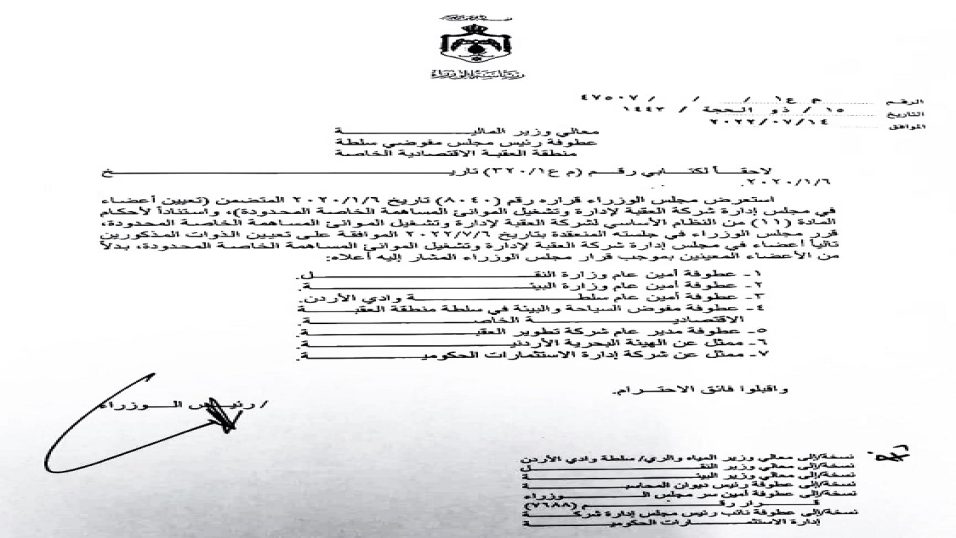 رئاسة الوزراء
الرقم م ع١ / / / ٤٧٥٠٧
التاريخ ١٥ / ذو الحجة / ١٤٤٣
الموافق ٢٠٢٢/٠٧/١٤
معالي وزير المالية
عطوفة رئيس مجلس مفوضي سلطة
منطقة العقبة الاقتصادية الخاصة
لاحقاً لكتابي رقم (م ع٣٢٠/١) تاريخ
٢٠٢٠/١/٦.
استعرض مجلس الوزراء قراره رقم (٨٠٤٠) تاريخ ٢٠٢٠/١/٦ المتضمن (تعيين أعضاء
في مجلس إدارة شركة العقبة لإدارة وتشغيل الموانئ المساهمة الخاصة المحدودة)، واستناداً لأحكام
المادة (١١) من النظام الأساسي لشركة العقبة لإدارة وتشغيل الموانئ المساهمة الخاصة المحدودة،
قرر مجلس الوزراء في جلسته المنعقدة بتاريخ ٢٠٢٢/٧/٦ الموافقة على تعيين الذوات المذكورين
تالياً أعضاء في مجلس إدارة شركة العقبة لإدارة وتشغيل الموانئ المساهمة الخاصة المحدودة، بدلاً
من الأعضاء المعينين بموجب قرار مجلس الوزراء المشار إليه أعلاه:
١- عطوفة أمين عام وزارة النقل.
٢- عطوفة أمين عام وزارة البيئة.
٣- عطوفة أمين عام سلطة وادي الأردن.
٤- عطوفة مفوض السياحة والبيئة في سلطة منطقة العقبة
الاقتصادية الخاصة.
٥- عطوفة مدير عام شركة تطوير العقبة.
٦- ممثل عن الهيئة البحرية الأردنية.
٧- ممثل عن شركة إدارة الاستثمارات الحكومية.
واقبلوا فائق الاحترام.
/ رئيس الوزراء
نسخة/إلى معالي وزير المياه والري/ سلطة وادي الأردن
نسخة/إلى معالي وزير النقل
نسخة/إلى معالي وزير البيئة
نسخة/إلى عطوفة رئيس ديوان المحاسبة
نسخة/إلى عطوفة أمين سر مجلس الوزراء
قرار رقم (٧٦٨٨)
نسخة/إلى عطوفة نائب رئيس مجلس إدارة شركة
إدارة الاستثمارات الحكومية